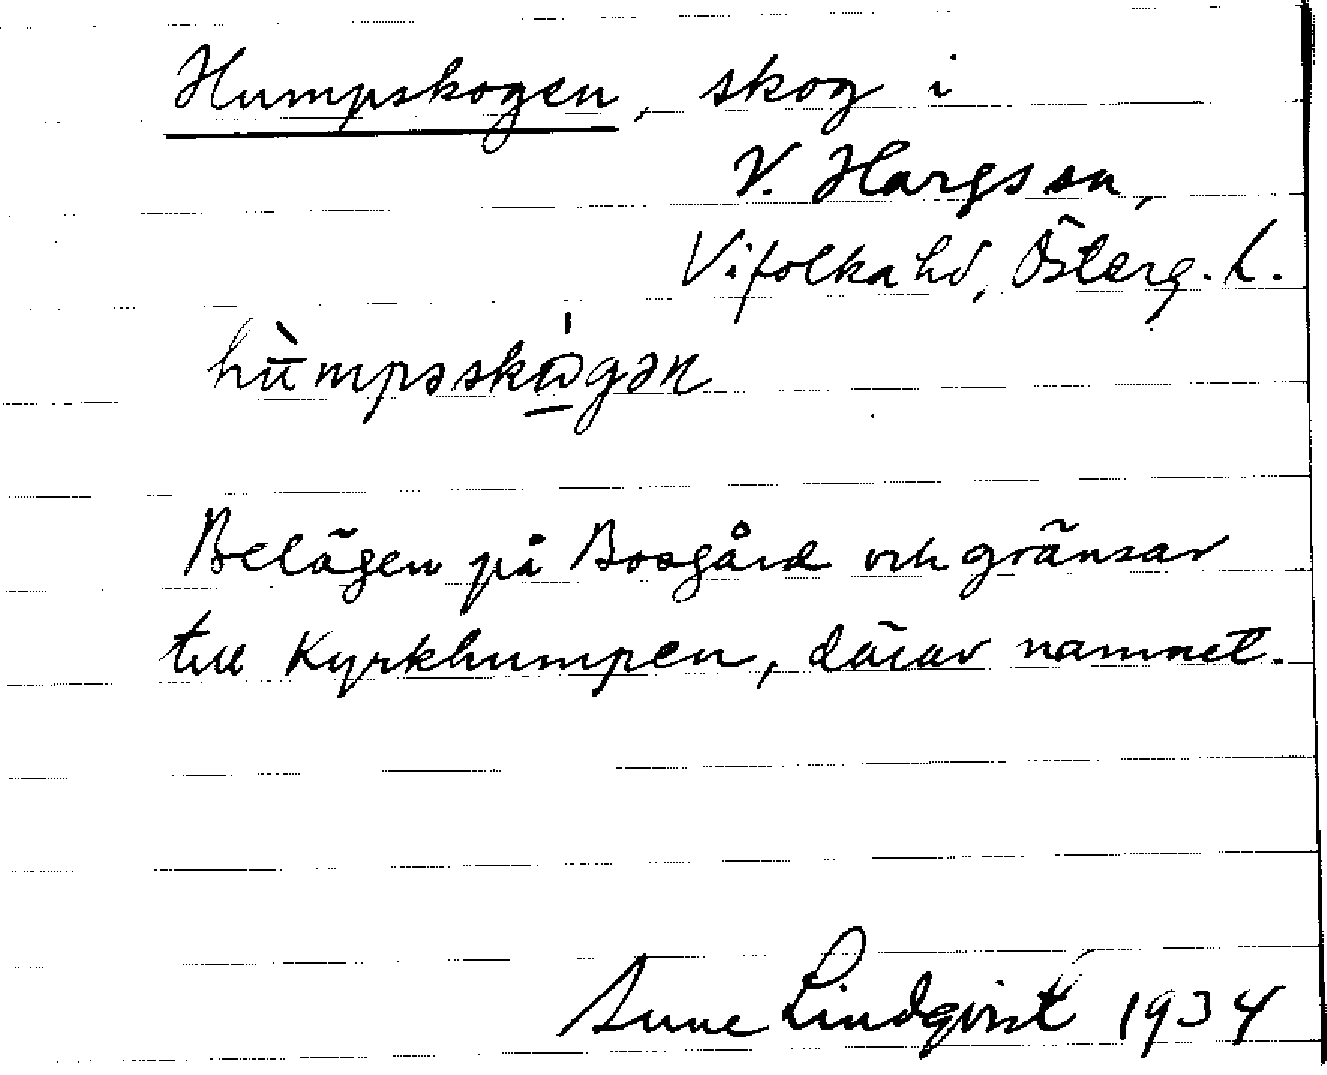 Humpskogen, skog i
V. Hargs sn,
Vifolka hd, Österg. L.
hùmpəskògən
Belägen på Bosgård och gränsar
till Kyrkhumpen, därav namnet.
Sune Lindqvist 1934